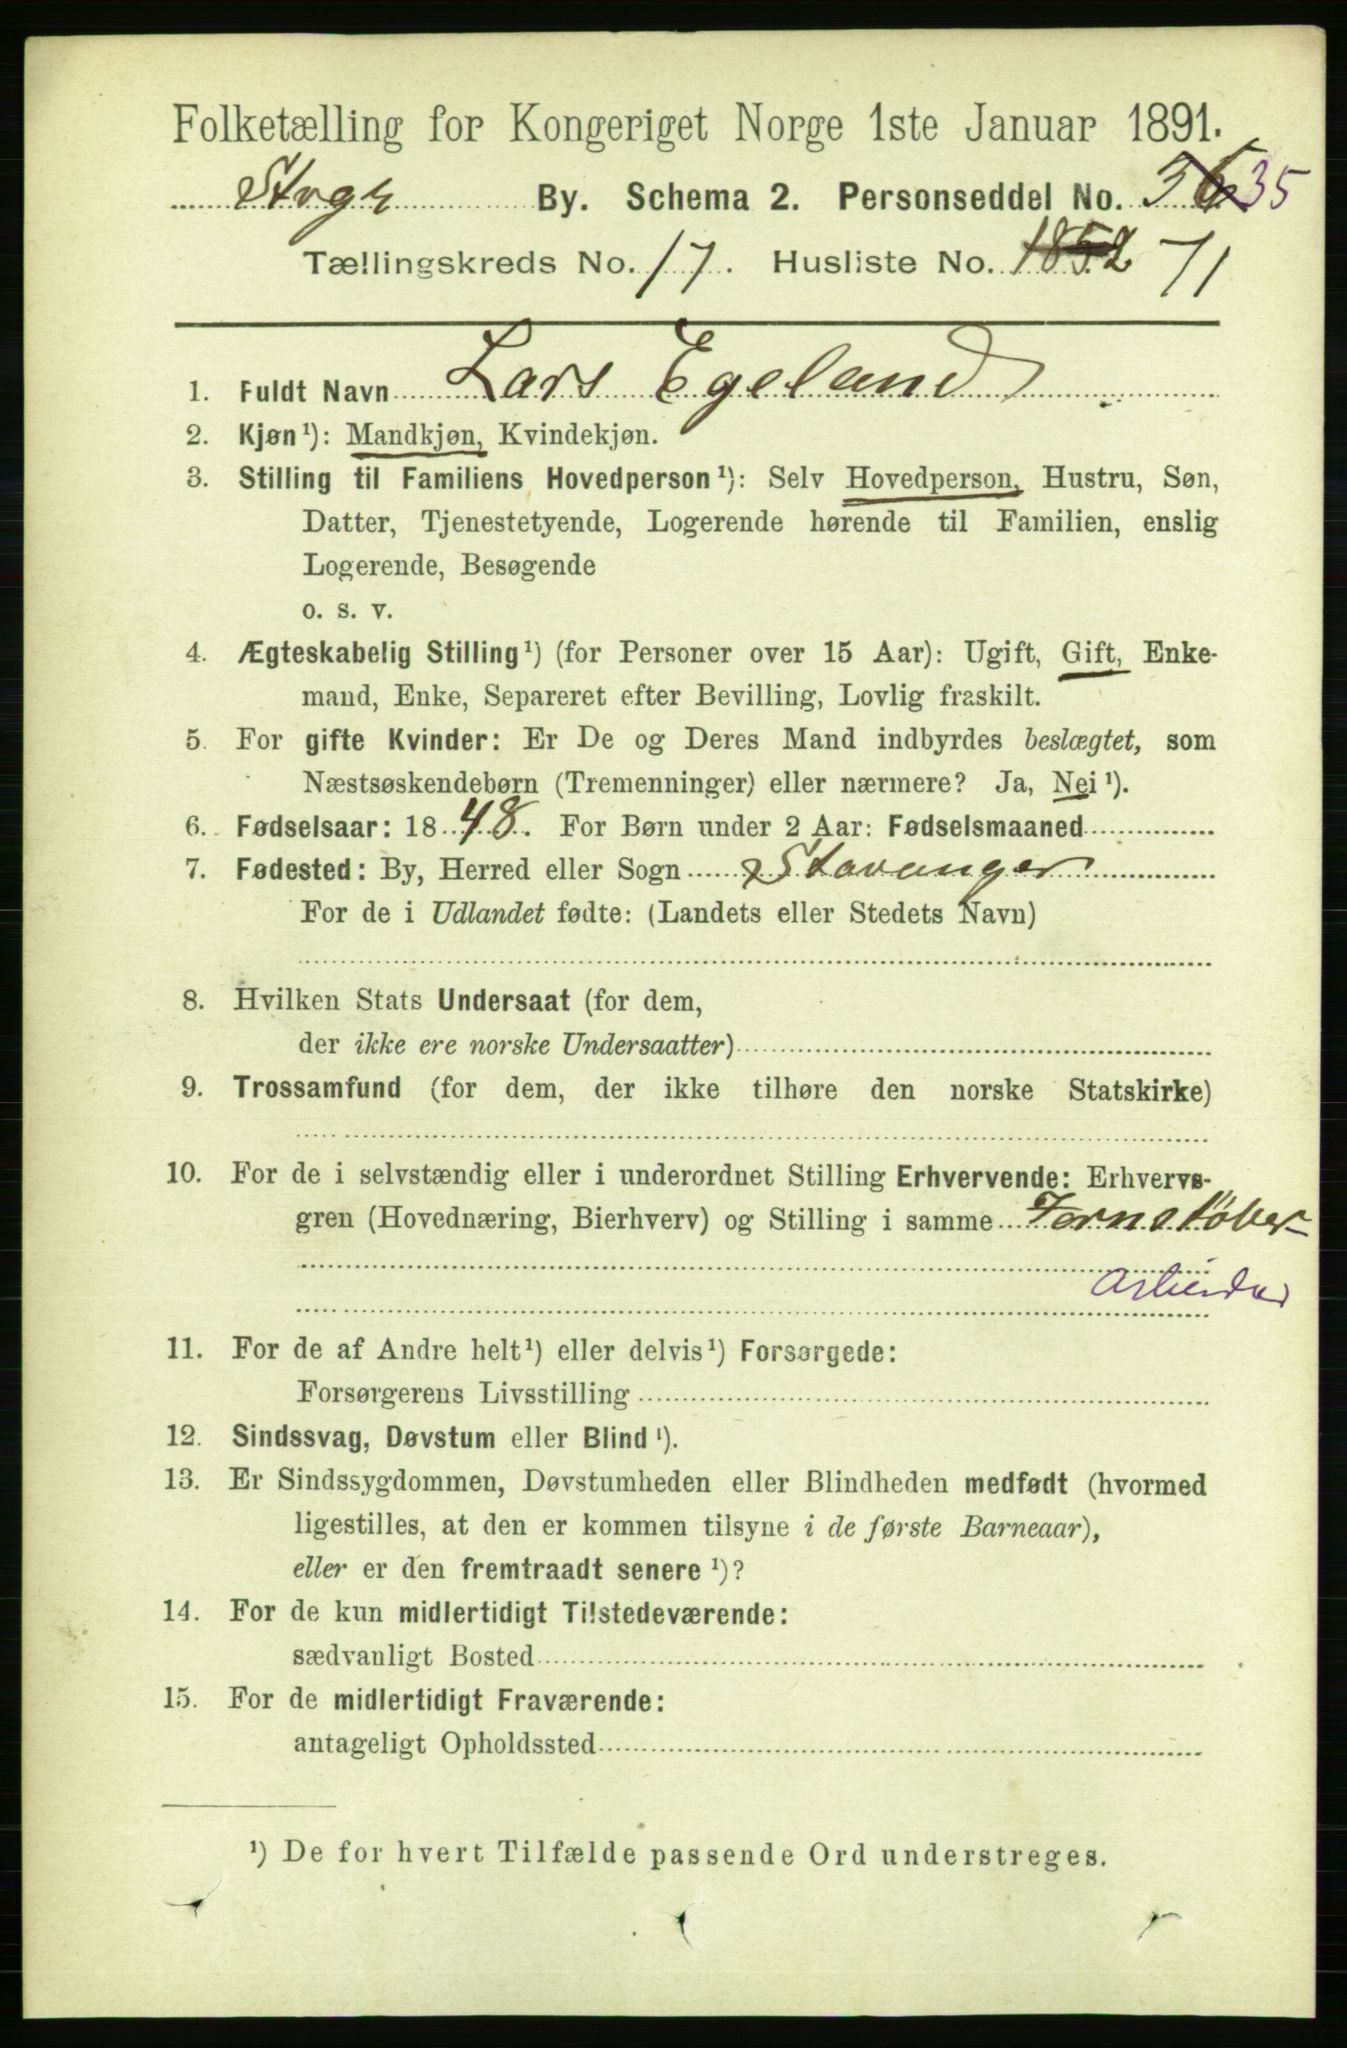 Folketælling for Kongeriget Norge 1ste Januar 1891.
Stvgr By. Schema 2. Personseddel No. 36 35
Tællingskreds No. 17. Husliste No. 1852 71
1. Fuldt Navn Lars Egeland
2. Kjøn¹): Mandkjøn, Kvindekjøn.
3. Stilling til Familiens Hovedperson¹): Selv Hovedperson, Hustru, Søn,
Datter, Tjenestetyende, Logerende hørende til Familien, enslig
Logerende, Besøgende
o. s. v.
4. Ægteskabelig Stilling¹) (for Personer over 15 Aar): Ugift, Gift, Enke-
mand, Enke, Separeret efter Bevilling, Lovlig fraskilt.
5. For gifte Kvinder: Er De og Deres Mand indbyrdes beslægtet, som
Næstsøskendebørn (Tremenninger) eller nærmere? Ja, Nei¹).
6. Fødselsaar: 1848. For Børn under 2 Aar: Fødselsmaaned
7. Fødested: By, Herred eller Sogn Stavanger
For de i Udlandet fødte: (Landets eller Stedets Navn)
8. Hvilken Stats Undersaat (for dem,
der ikke ere norske Undersaatter)
9. Trossamfund (for dem, der ikke tilhøre den norske Statskirke)
10. For de i selvstændig eller i underordnet Stilling Erhvervende: Erhvervs-
gren (Hovednæring, Bierhverv) og Stilling i samme Jernstøber
Arbeider
11. For de af Andre helt¹) eller delvis¹) Forsørgede:
Forsørgerens Livsstilling
12. Sindssvag, Døvstum eller Blind¹).
13. Er Sindssygdommen, Døvstumheden eller Blindheden medfødt (hvormed
ligestilles, at den er kommen tilsyne i de første Barneaar),
eller er den fremtraadt senere¹)?
14. For de kun midlertidigt Tilstedeværende:
sædvanligt Bosted
15. For de midlertidigt Fraværende:
antageligt Opholdssted
¹) De for hvert Tilfælde passende Ord understreges.